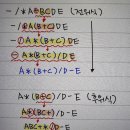 -/*A+BCDE (전위식)
-/*A(B+C)DE
-/A*(B+C)DE
-A*(B+C)/DE
A*(B+C)/D-E
A*(B+C)/D-E (후위식)
A*(BC+)/D-E
ABC+*/D-E